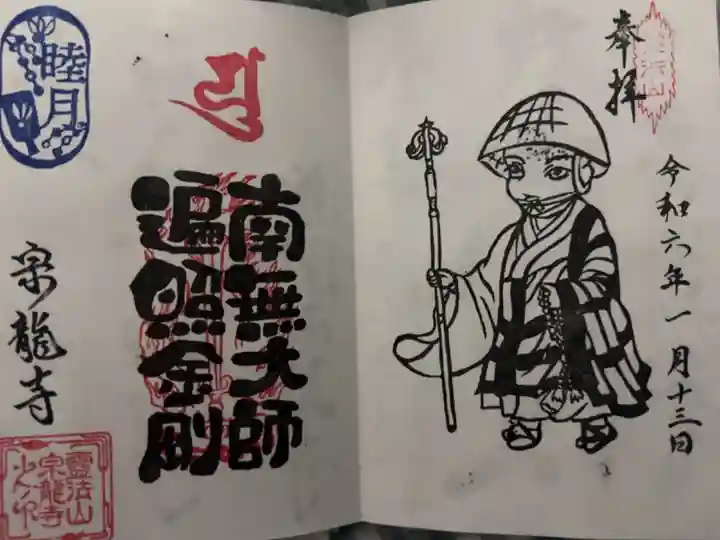 奉拝
令和六年一月十三日
南無大師
遍照金剛
睦月
宗龍寺
霊法山
宗龍寺
之印